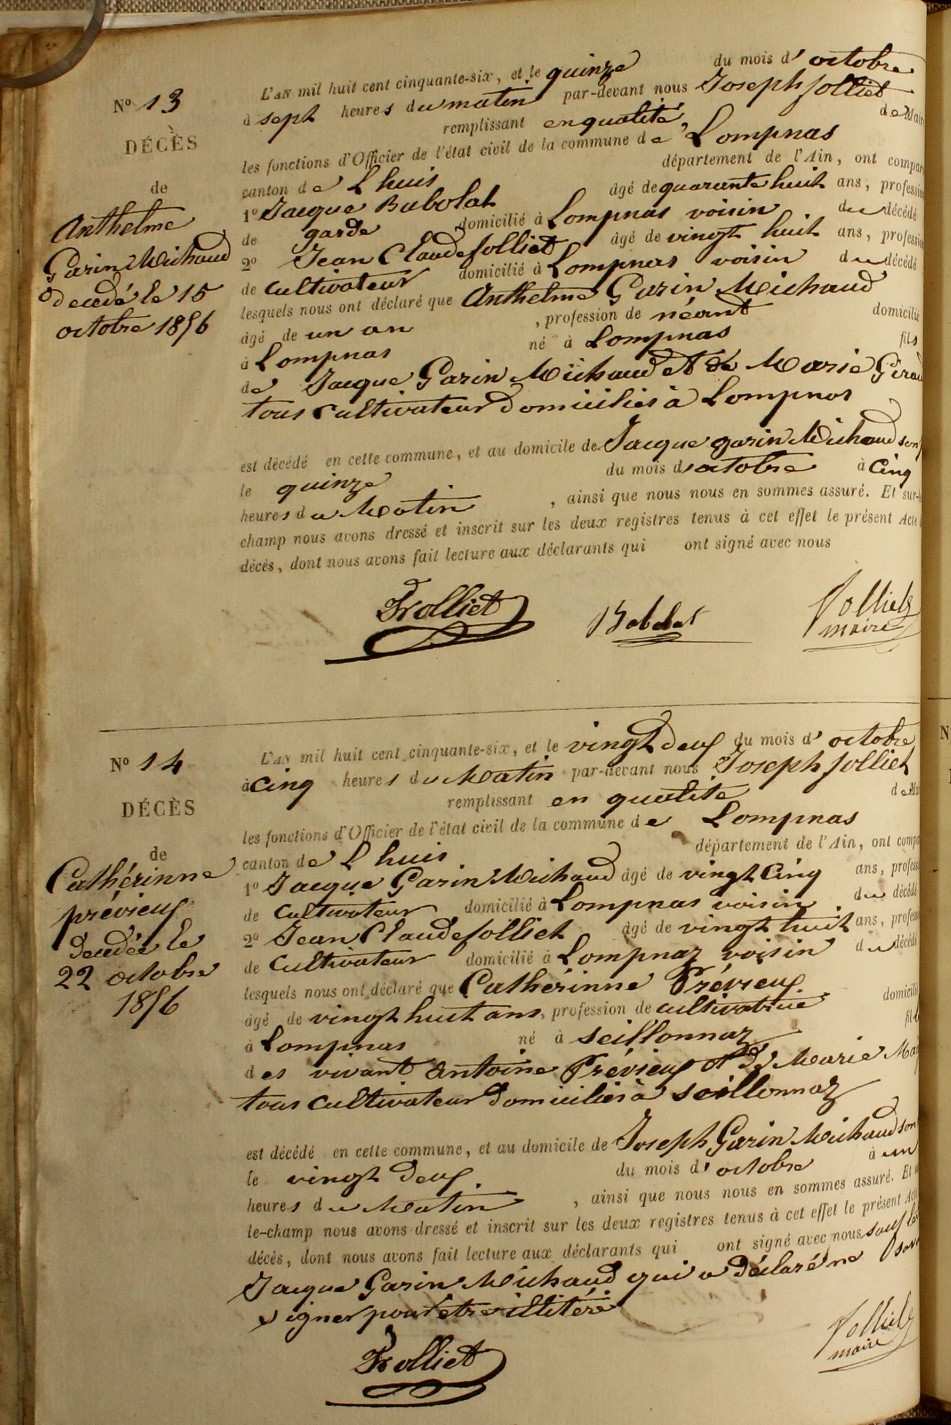 N° 13
DÉCÈS
de
Anthelme
Garin Michaud
decedé le 15
octobre 1856
L'AN mil huit cent cinquante-six, et le quinze du mois d' octobre
à sept heures du matin par-devant nous Joseph Jolliet
remplissant en qualité de Maire
les fonctions d'Officier de l'état civil de la commune de Lompnas
canton de Lhuis département de l'Ain, ont compar
1° Jacque Babolat âgé de quarante huit ans, profession
de garde domicilié à Lompnas voisin du décédé
2° Jean Claude Jolliet âgé de vingt huit ans, profession
de cultivateur domicilié à Lompnas voisin du décédé
lesquels nous ont déclaré que Anthelme Garin Michaud
âgé de un an , profession de néant domicilié
à Lompnas né à Lompnas fils
de Jacque Garin Michaud et de Marie
tous cultivateur domiciliés à Lompnas
est décédé en cette commune, et au domicile de Jacque garin Michaud son
le quinze du mois d octobre à cinq
heures du Matin , ainsi que nous nous en sommes assuré. Et sur-
champ nous avons dressé et inscrit sur les deux registres tenus à cet effet le présent Acte
décès, dont nous avons fait lecture aux déclarants qui ont signé avec nous
Jolliet Babolat Jolliet
maire
N° 14
DÉCÈS
de
Cathérinne
prévieux
decedée le
22 octobre
1856
L'AN mil huit cent cinquante-six, et le vingt deux du mois d' octobre
à cinq heures du Matin par-devant nous Joseph Jolliet
remplissant en qualité de
les fonctions d'Officier de l'état civil de la commune de Lompnas
canton de Lhuis département de l'Ain, ont compa
1° Jacque Garin Michaud âgé de vingt cinq ans, profess
de cultivateur domicilié à Lompnas voisin du décédé
2° Jean Claude Jolliet âgé de vingt huit ans, profess
de cultivateur domicilié à Lompnaz voisin du décédé
lesquels nous ont déclaré que Cathérinne Prévieux
âgé de vingt huit ans, profession de cultivatrice domicilié
à Lompnas né à seillonnaz fil
des vivant Antoine Prévieux et de Marie
tous cultivateur domiciliés à seillonnaz
est décédé en cette commune, et au domicile de Joseph Garin Michaud son
le vingt deux du mois d' octobre à un
heures du Matin , ainsi que nous nous en sommes assuré. Et
le-champ nous avons dressé et inscrit sur les deux registres tenus à cet effet le présent Acte
décès, dont nous avons fait lecture aux déclarants qui ont signé avec nous sauf
Jacque Garin Michaud qui a déclaré ne savoir
signer pour être illitéré
Jolliet Jolliet
maire